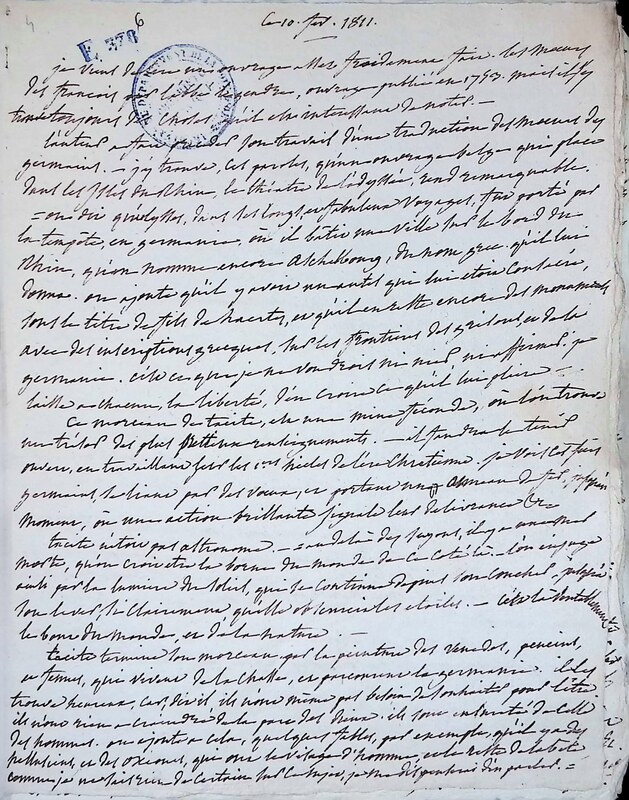 4
6
ce 10. fev. 1811.
E. 370
je viens de lire un ouvrage assez froidement fait. les Moeurs
des françois par l'abbé le gendre, ouvrage publié en 1753. mais il s'y
trouve toujours des choses qu'il est interessant de noter. —
l'auteur a fait de son travail d'une traduction des Moeurs des
germains. — j'y trouve, ces paroles, qu'un ouvrage belge qui place
dans les isles du Rhin, le théatre de l'odyssée, rend remarquable.
= on dit qu'ulysse, dans ses longs, et fabuleux voyages, fut porté par
la tempête, en germanie, où il bâtit une ville sur le bord du
Rhin, qu'on nomme encore Aschelbourg, du nom grec qu'il lui
donna. on ajoute qu'il y avoit un autel qui lui étoit consacré,
sous le titre de fils de Laerte, et qu'il en reste encore des monuments
avec des inscriptions grecques, sur les frontieres des grisons, et de la
germanie. c'est ce que je ne voudrois ni nier, ni affirmer. je
laisse a chacun, la liberté, d'en croire ce qu'il lui plaira —
Ce morceau de tacite, est une mine féconde, où l'on trouve
un trésor des plus renseignements. — il faudra le tenir
ouvert, en travaillant sur les 1ers siècles de l'ere chretienne. je vois ces fiers
germains, se liant par des voeux, et portant un anneau de fer, jusqu'au
moment, où une action brillante signale leur délivrance &c.
tacite n'étoit pas astronome. — au delà des suyons, il y a une mer
morte, qu'on croit etre la borne du monde de ce coté là. l'on en juge
ainsi par la lumiere du soleil, qui se continue depuis son coucher, jusqu'à
son lever, si clairement qu'elle obscurcit les etoiles. — c'est là
le bout du monde, et de la nature. —
tacite termine son morceau, par la peinture des venedes, peucins,
et fennes, qui vivent de la chasse, et parcourent la germanie. il les
trouve heureux, car, dit-il, ils n'ont même pas besoin de souhaits pour l'être.
ils n'ont rien a craindre de la part des dieux. ils sont en sureté de celle
des hommes. on ajoute a cela, quelques fables, par exemple, qu'il y a des
hellusiens, et des oxiones, qui ont le visage d'homme, et le reste de la bête
comme je ne sais rien de certain sur ce sujet, je me dispenserai d'en parler. =